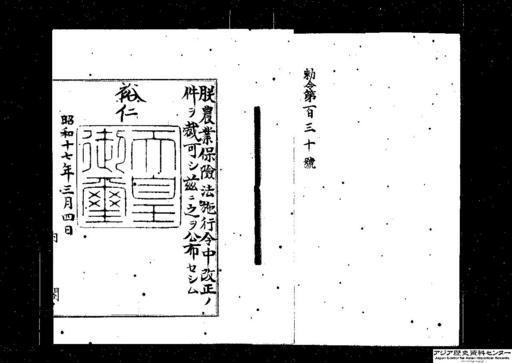 勅令第百三十號
朕農業保險法施行令中改正ノ
件ヲ裁可シ茲ニ之ヲ公布セシム
裕仁
天皇
御璽
昭和十七年三月四日
内
閣
アジア歴史資料センター
Japan Center for Asian Historical Records